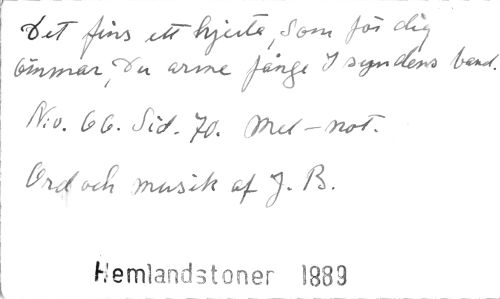 Det fins ett hjerta, Som för dig
ömmar, Du arme fånge I syndens band.
No. 66. Sid. 70. Mel-not.
Ord och musik af J. B.
Hemlandstoner 1889